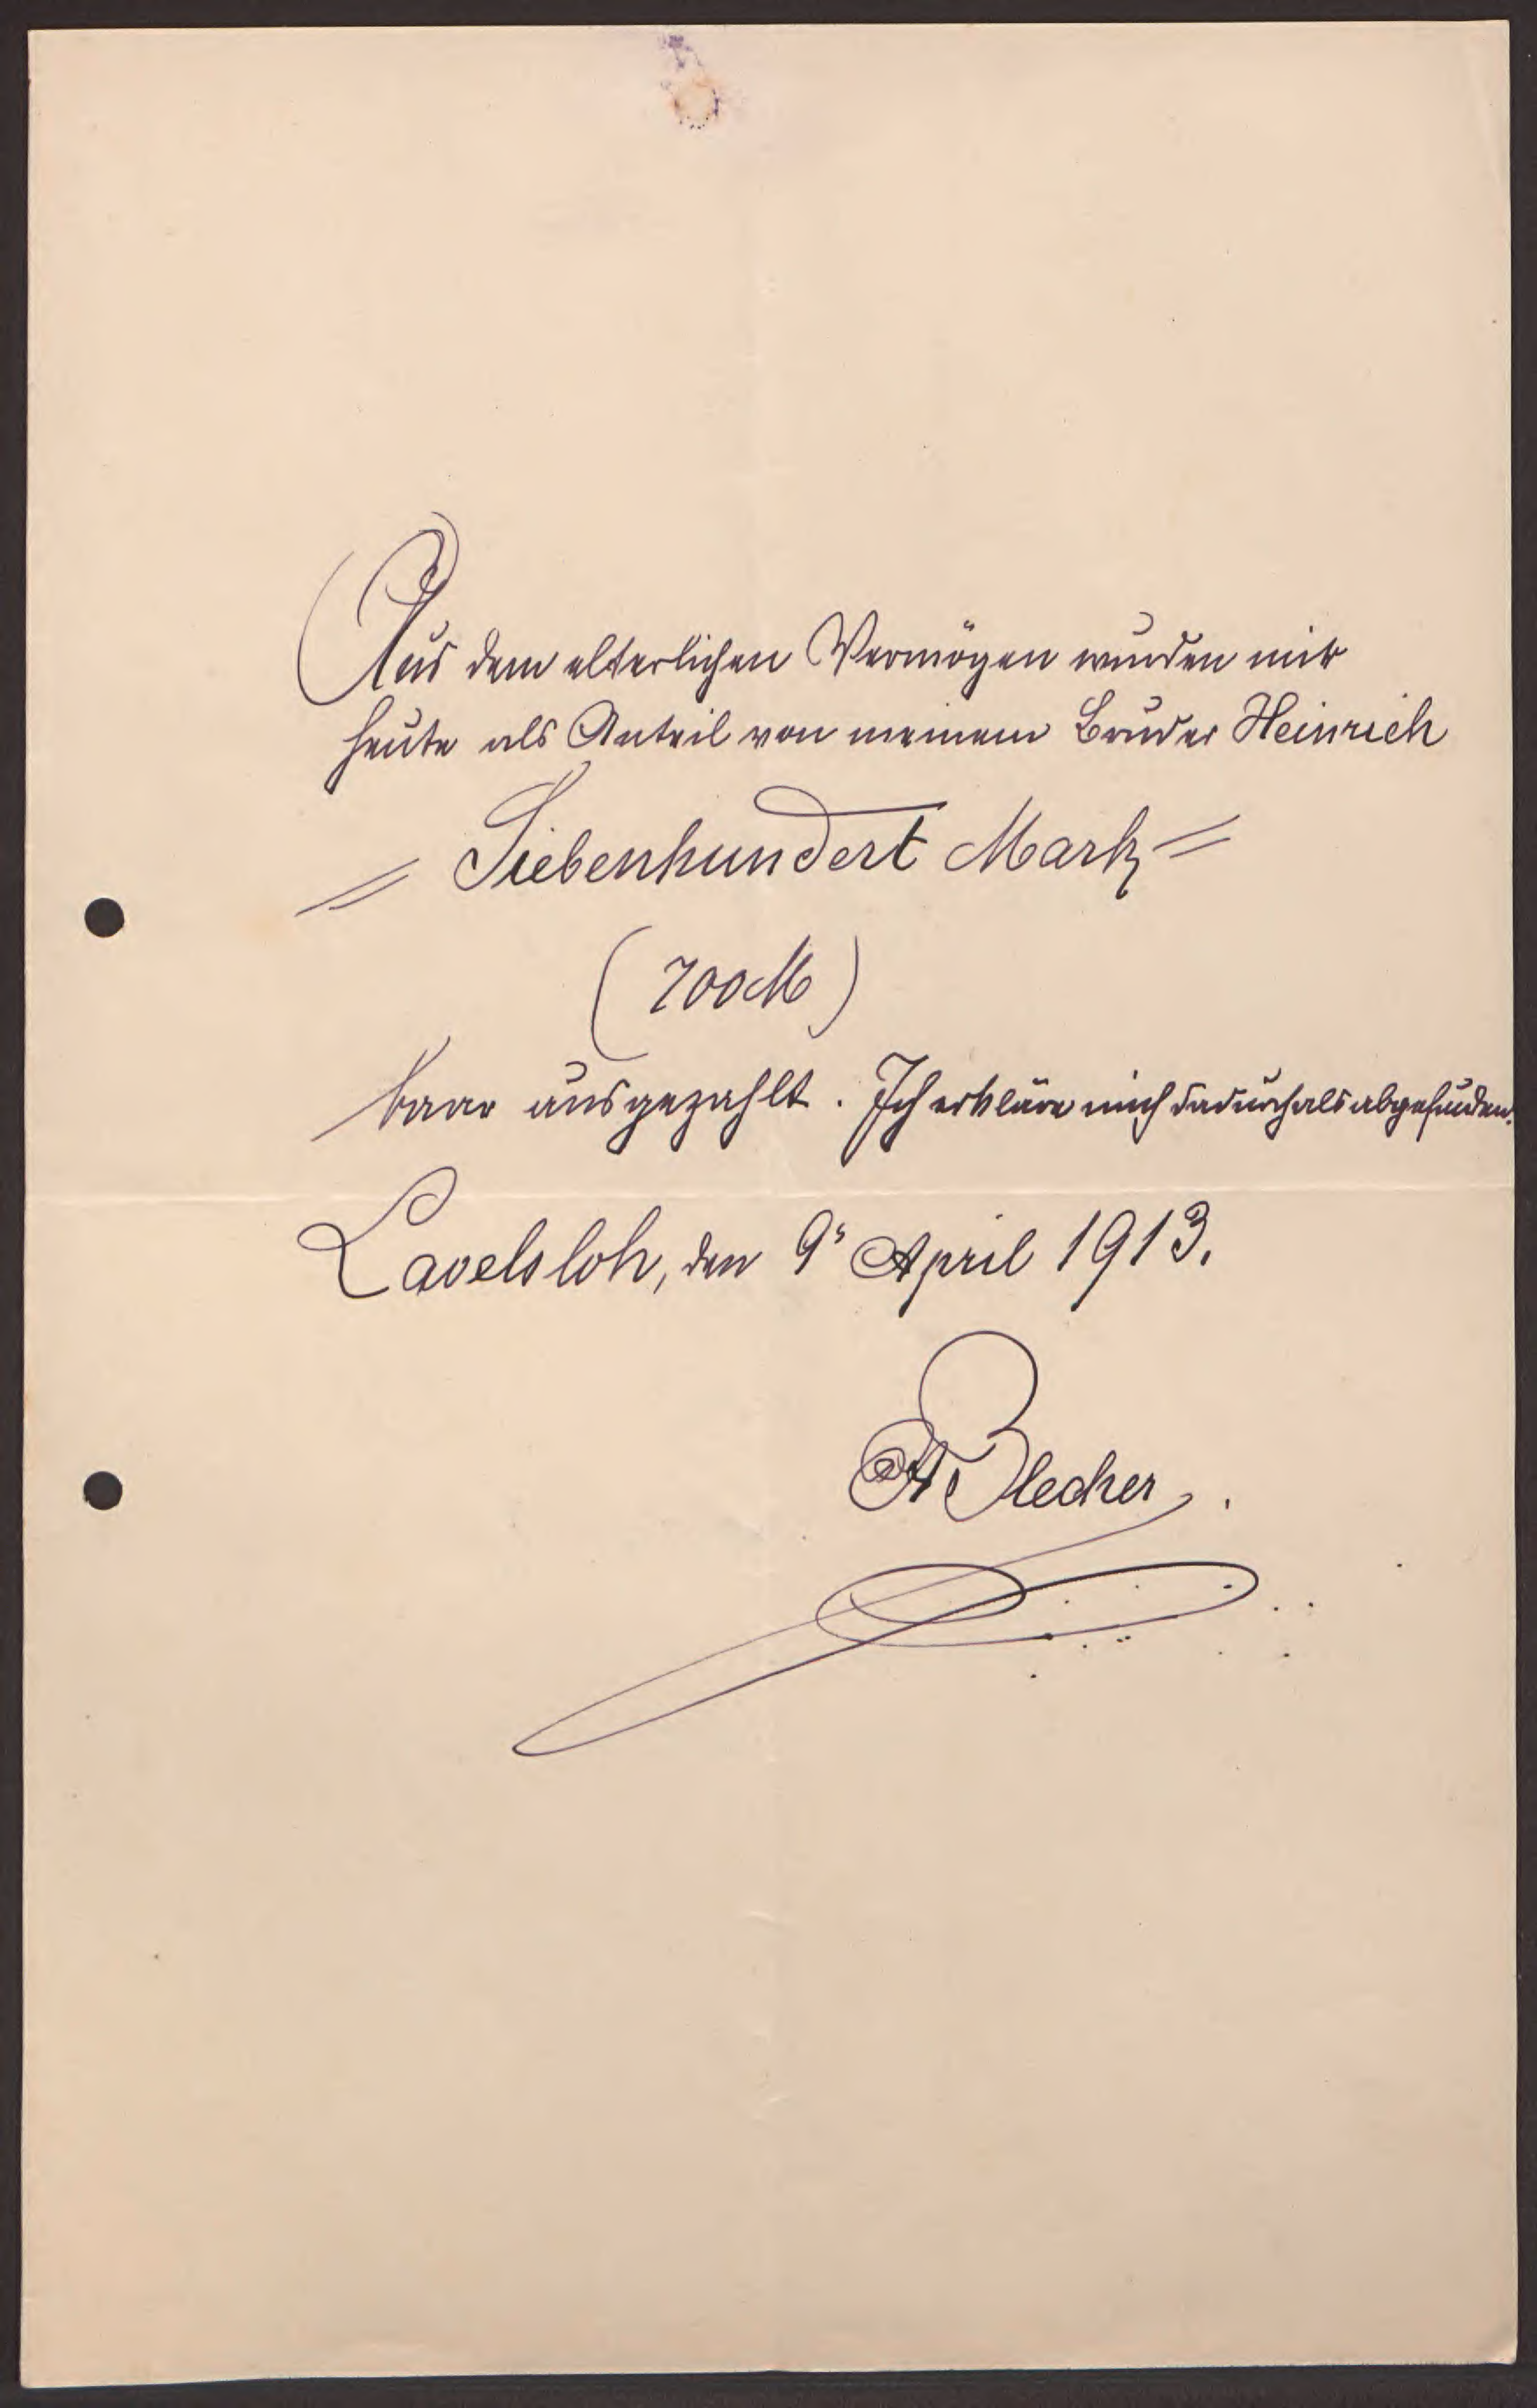 Aus dem elterlichen Vermögen wurden mir
heute als Anteil von meinem Bruder Heinrich
= Siebenhundert Mark =
(700 M)
baar ausgezahlt. Ich erkläre mich dadurch als abgefunden.
Lavelsloh, den 9ˢ April 1913.
Blecher.